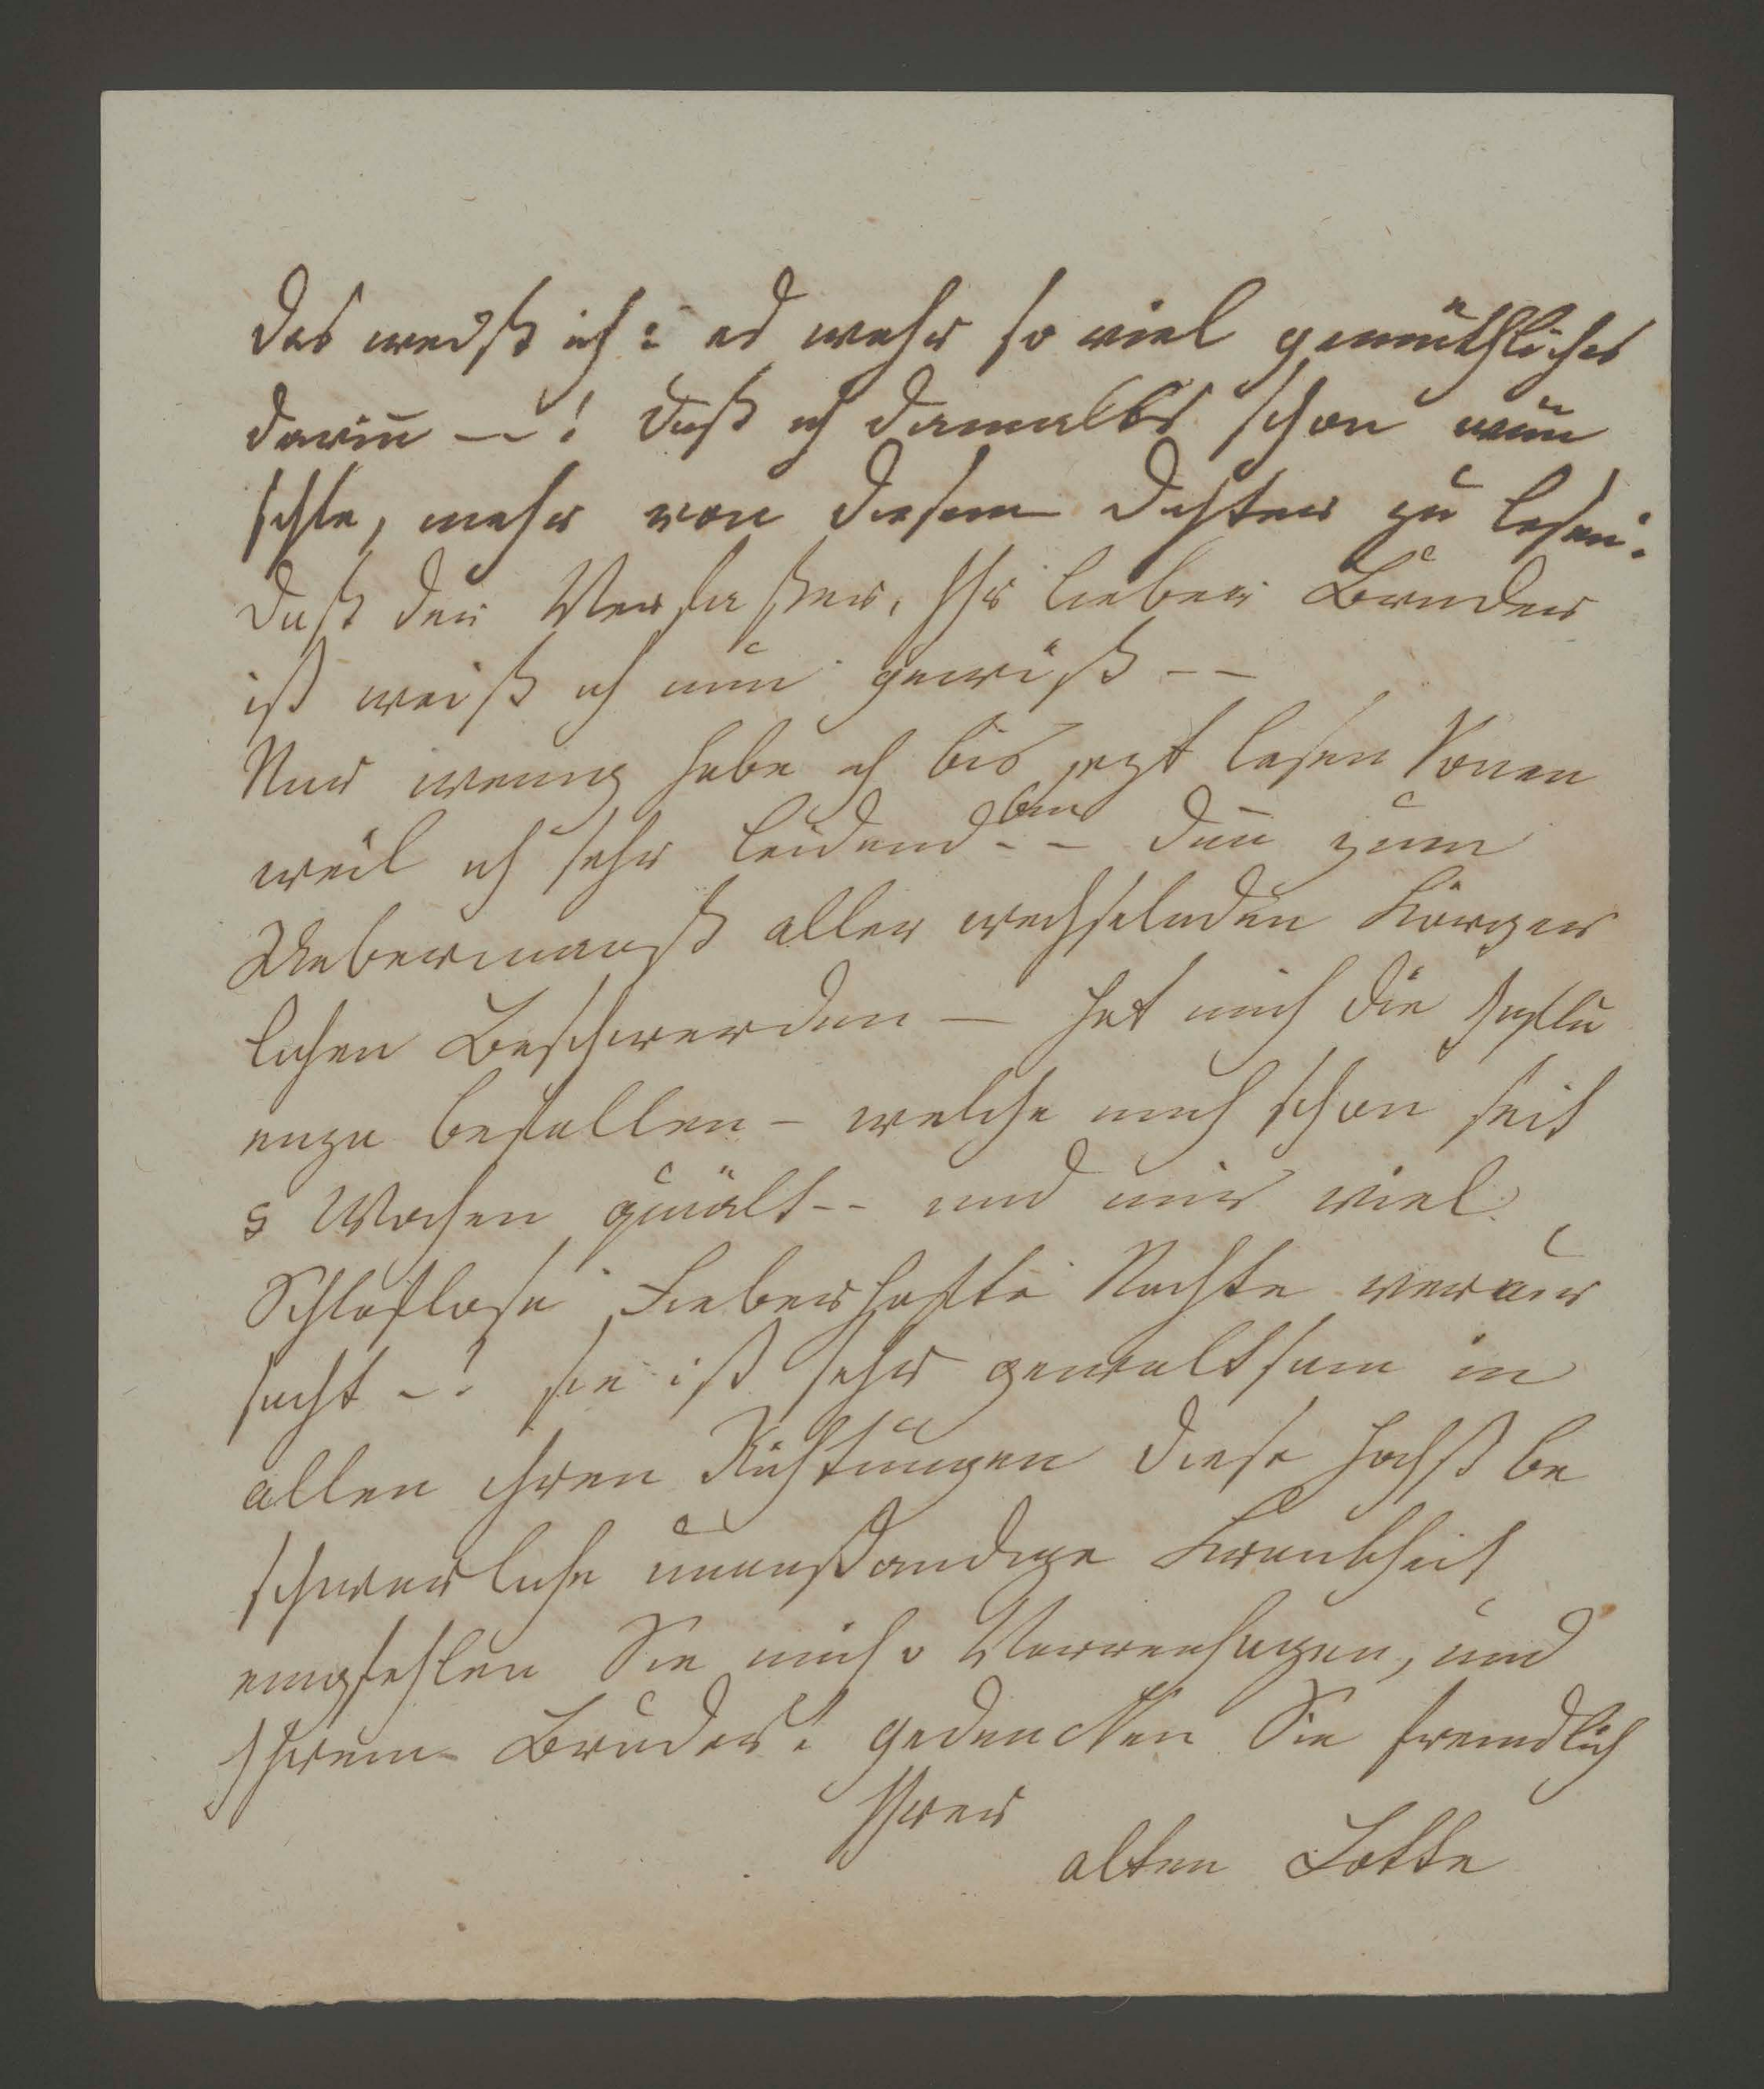 das weiß ich: es wahr so viel gemüthliches
darin̄ –! daß ich damalls schon wün
schte, mehr von diesem Dichter zu lesen:
daß der Verfaßer, Ihr lieber Bruder
ist weiß ich nun gewiß --
Nur wenig habe ich bis jezt lesen konen
weil ich sehr leidend bin -- den̄ zum
Uebermaaß aller wechselnden Körper
lichen Beschwerden – hat mich die Influ
enza befallen – welche mich schon seit
5 Wochen quält -- und mir viel
Schlaflose Fieberhafte Nächte verur
sacht –! sie ist sehr gewaltsam in
allen ihren Richtungen diese höchst be
schwerliche unanständige Krankheit
empfehlen Sie mich Varrenhagen, und
Ihrem Bruder! gedencken Sie freundlich
Ihrer
alten Lotte